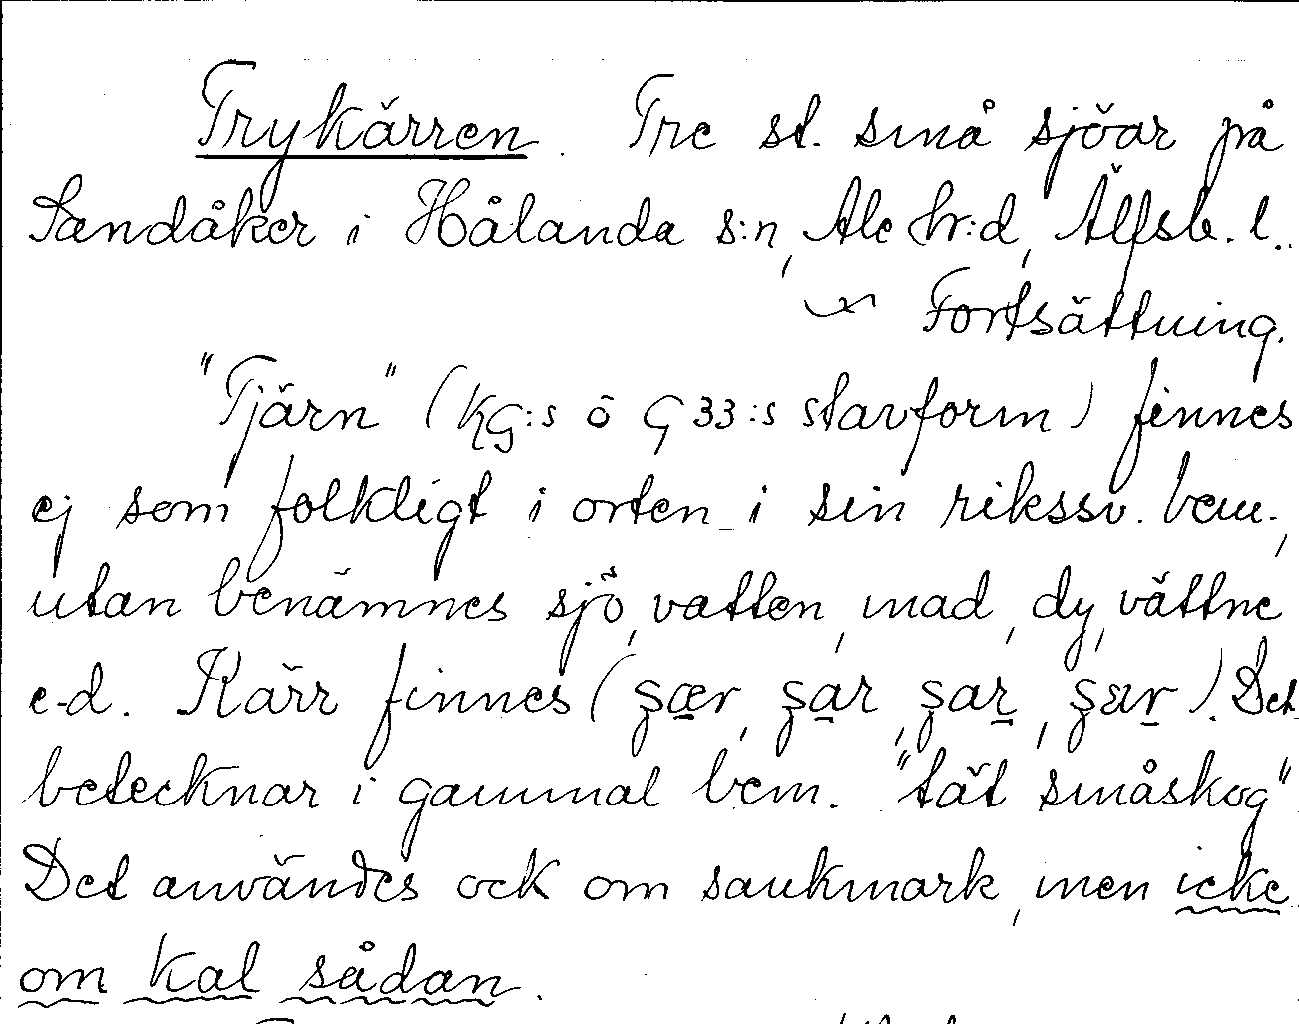 Trykärren. Tre st. små sjöar på
Sandåker i Hålanda s:n, Ale hr:d, Älfsb. l..
Fortsättning.
"Tjärn" (KG:s o G 33:s stavform) finnes
ej som folkligt i orten i sin rikssv. bem.,
utan benämnes sjö, vatten, mad, dy, vättne
e.d. Kärr finnes (şær, şar, şar, şær). Det
betecknar i gammal bem. "tät småskog"
Det användes ock om sankmark, men icke
om kal sådan.